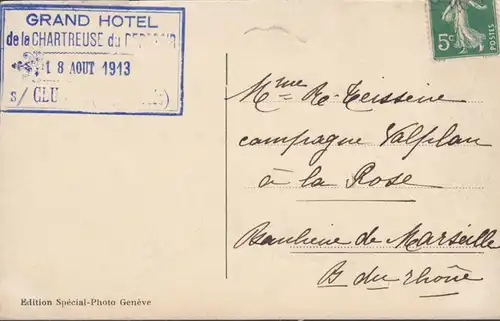 GRAND HOTEL
de la CHARTREUSE du
18 AOUT 1913
s/ CLU
5c
POSTES
Mme R. Teisseire
campagne Valplan
à la Rose
Banlieue de Marseille
B du rhône
Edition Spécial-Photo Genève